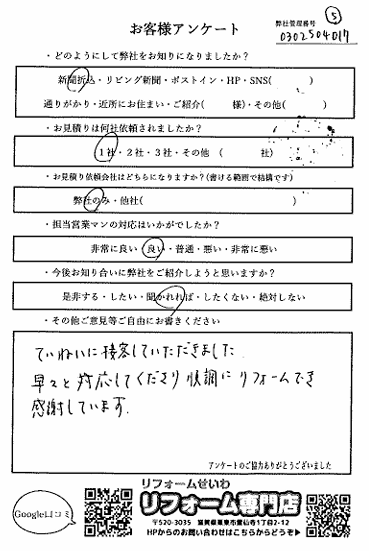 お客様アンケート
弊社管理番号 ⑤
0302504017
・どのようにして弊社をお知りになりましたか?
新聞折込・リビング新聞・ポストイン・HP・SNS( )
通りがかり・近所にお住まい・ご紹介( 様)・その他( )
・お見積りは何社依頼されましたか?
1社・2社・3社・その他 ( 社)
・お見積り依頼会社はどちらになりますか?(書ける範囲で結構です)
弊社のみ・他社( )
・担当営業マンの対応はいかがでしたか?
非常に良い・良い・普通・悪い・非常に悪い
・今後お知り合いに弊社をご紹介しようと思いますか?
是非する・したい・聞かれれば・したくない・絶対しない
・その他ご意見等ご自由にお書きください
ていねいに接客していただきました
早々と対応してくださり順調にリフォームでき
感謝しています.
アンケートのご協力ありがとうございました
Google口コミ
リフォームせいわ
リフォーム専門店
〒520-3035 滋賀県栗東市霊仙寺1丁目2-12
HPからのお問い合わせはこちらからどうぞ▶